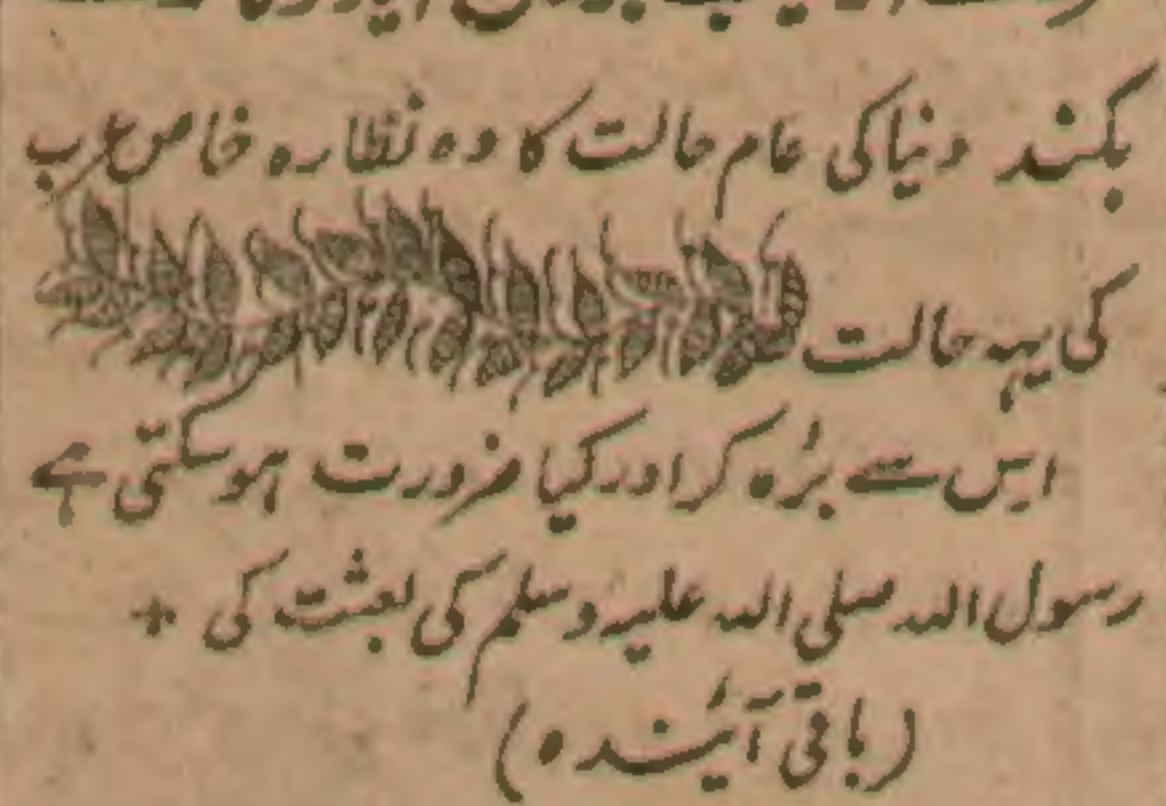 بکنند دنیا کی عام حالت کا وہ نظارہ خاص عرب
کی یہہ حالت
اس سے بڑہ کر اور کیا ضرورت ہو سکتی ہے
رسول اللہ صلی اللہ علیہ وسلم کی بعثت کی +
(باقی آئیندہ)